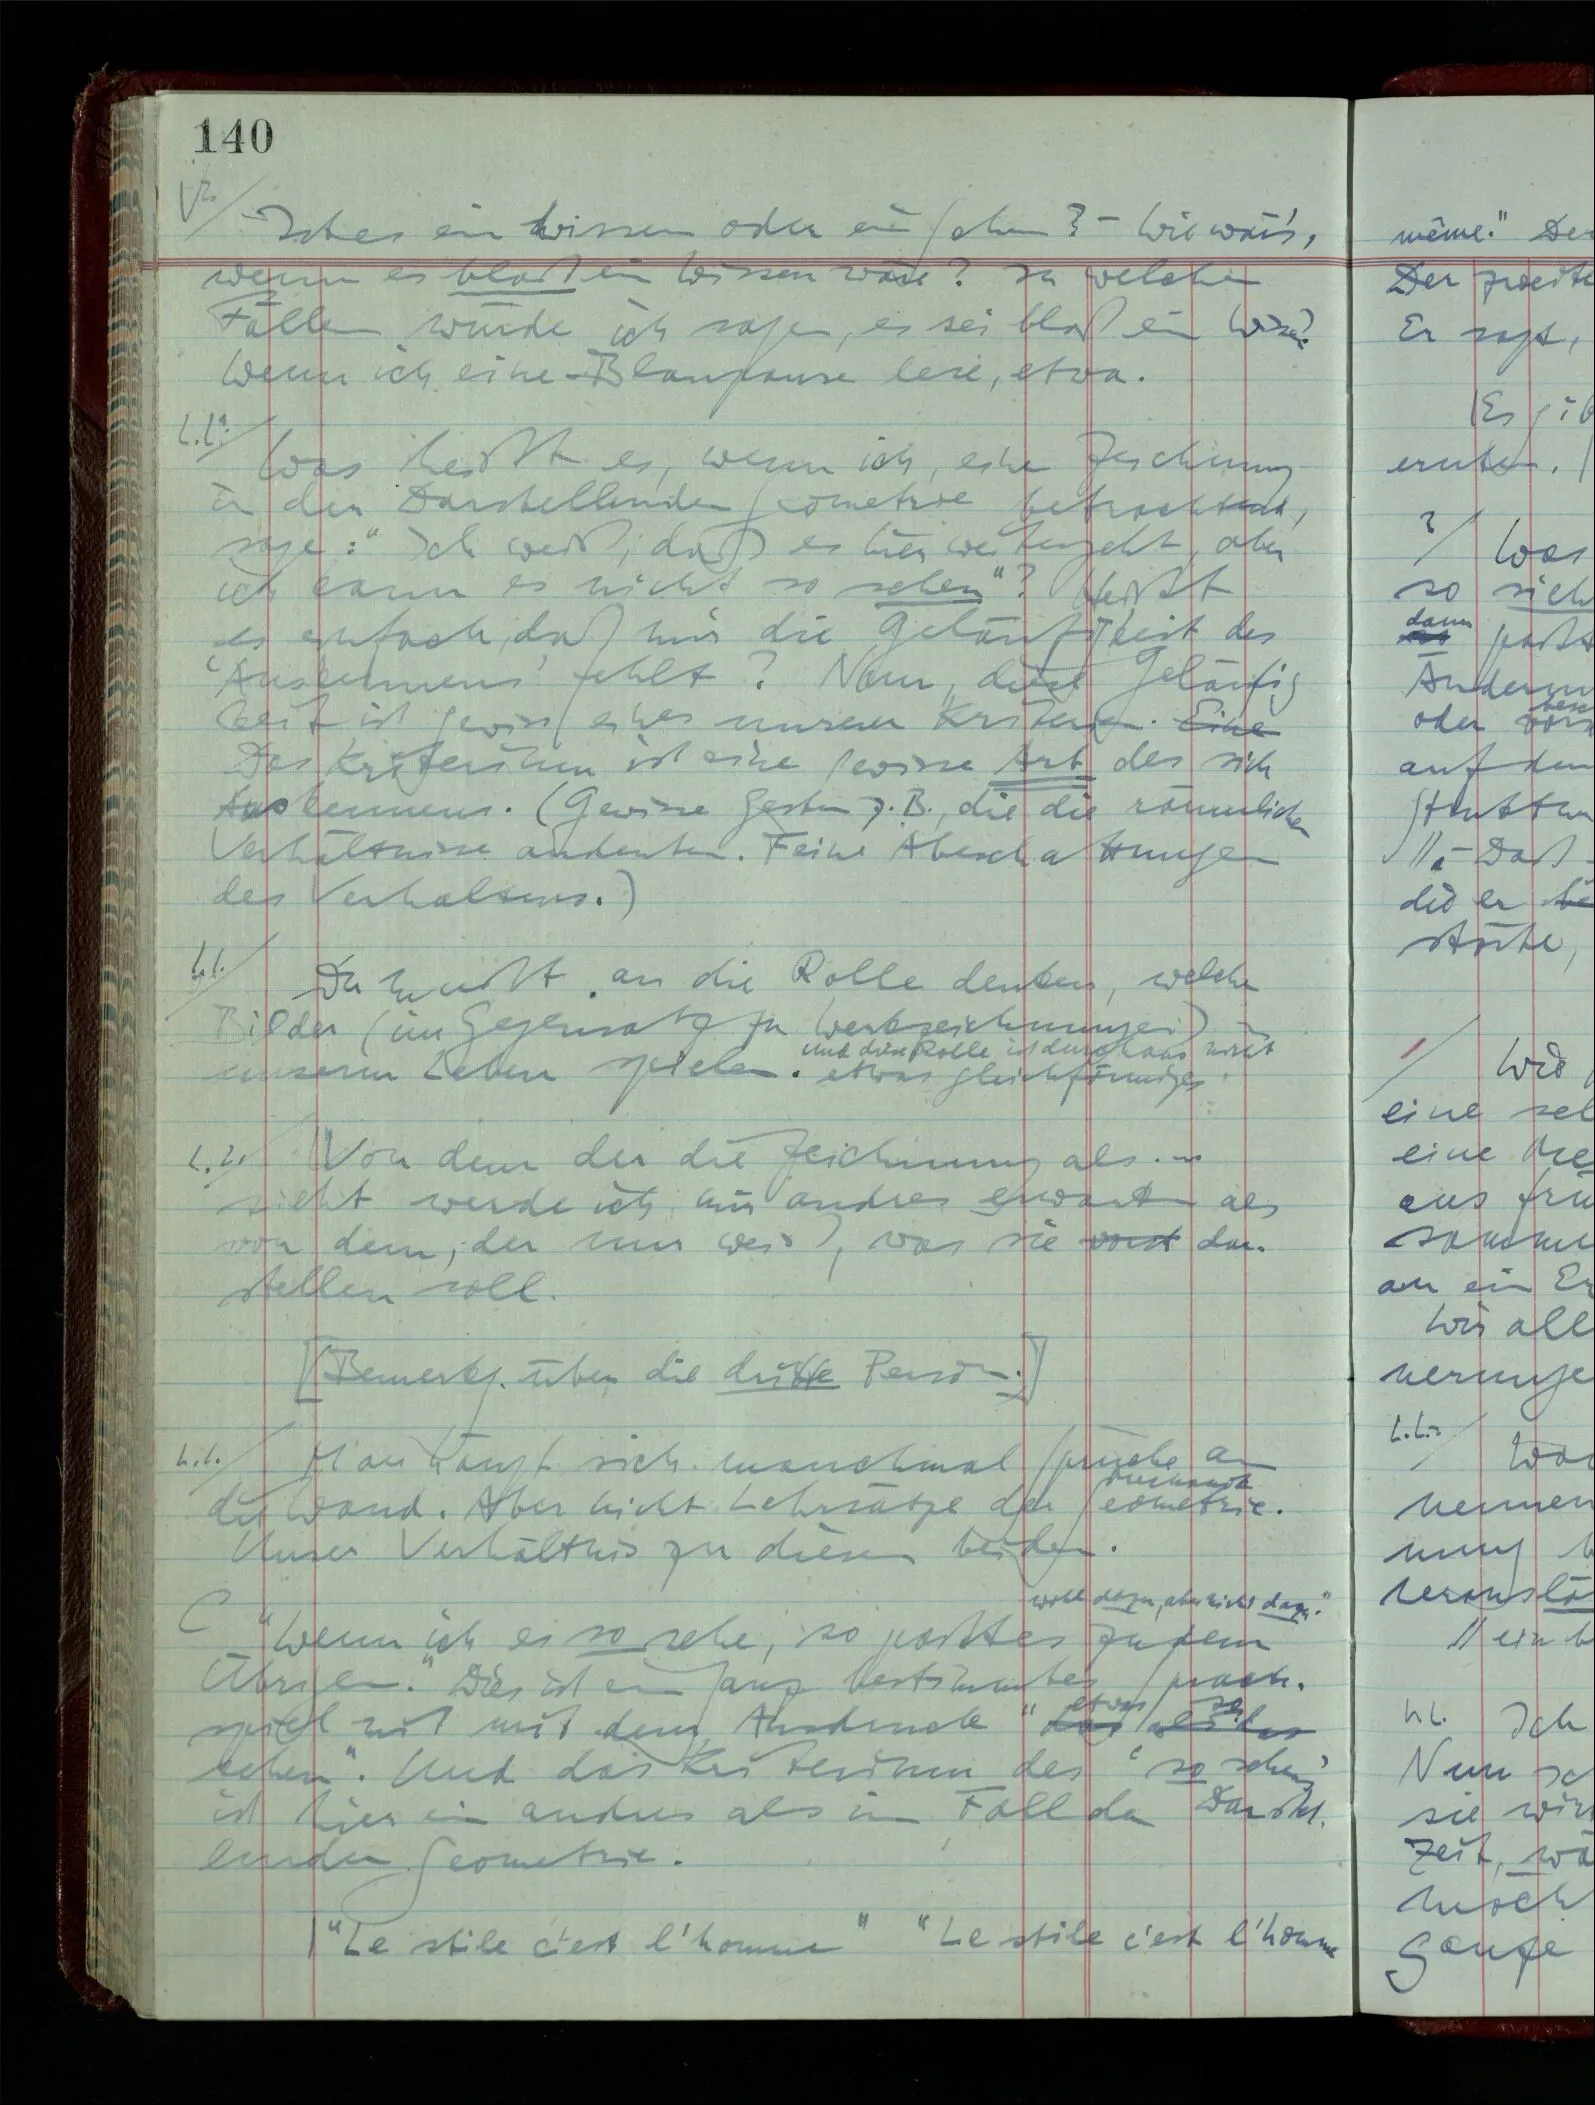 140
Ist es ein Wissen oder ein Sehen? – Wie wär's,
wenn es bloß ein Wissen wäre? In welchen
Fällen würde ich sagen, es sei bloß ein Wissen?
Wenn ich eine Blaupause lese, etwa.
Was heißt es, wenn ich, eine Zeichnung
in der Darstellenden Geometrie betrachtend,
sage: "Ich weiß, daß es hier weitergeht, aber
ich kann es nicht so sehen"? Heißt
es einfach, daß mir die Geläufigkeit des
'Auskennens' fehlt? Nun, diese Geläufig
keit ist gewiss eines unserer Kriterien. Eine
Das Kriterium ist eine gewisse Art des sich
Auskennens. (Gewisse Gesten z.B., die die räumlichen
Verhältnisse andeuten. Feine Abschattungen
des Verhaltens.)
Du mußt an die Rolle denken, welche
Bilder (im Gegensatz zu Werkzeichnungen) in
unserm Leben spielen. Und diese Rolle ist durchaus nicht
etwas gleichförmiges.
Von dem der die Zeichnung als ...
sieht werde ich mir andres erwarten als
von dem, der nur weiß, was sie dar-
stellen soll.
[Bemerkg. über die dritte Person.]
Man hängt sich manchmal Sprüche an
die Wand. Aber nicht Lehrsätze der Geometrie.
Unser Verhältnis zu diesen beiden.
wohl dazu, aber nicht dazu."
"Wenn ich es so sehe, so paßt es zu dem
Übrigen." Dies ist ein ganz bestimmtes Sprach-
spiel mit dem Ausdruck "etwas so
sehen". Und das Kriterium des 'so sehens'
ist hier ein andres als im Fall der Darstel-
lenden Geometrie.
"Le stile c'est l'homme" "Le stile c'est l'homme
même." Der
Der zweite
Er sagt,
ernten.
? Was
so sieh
dann
oder
auf den
– Daß
die er
Wie
eine
eine
aus frü
an ein
Wir all
nennen
nung
ein
Ich
Nun
sie
Zeit, wä
möch
Ganze